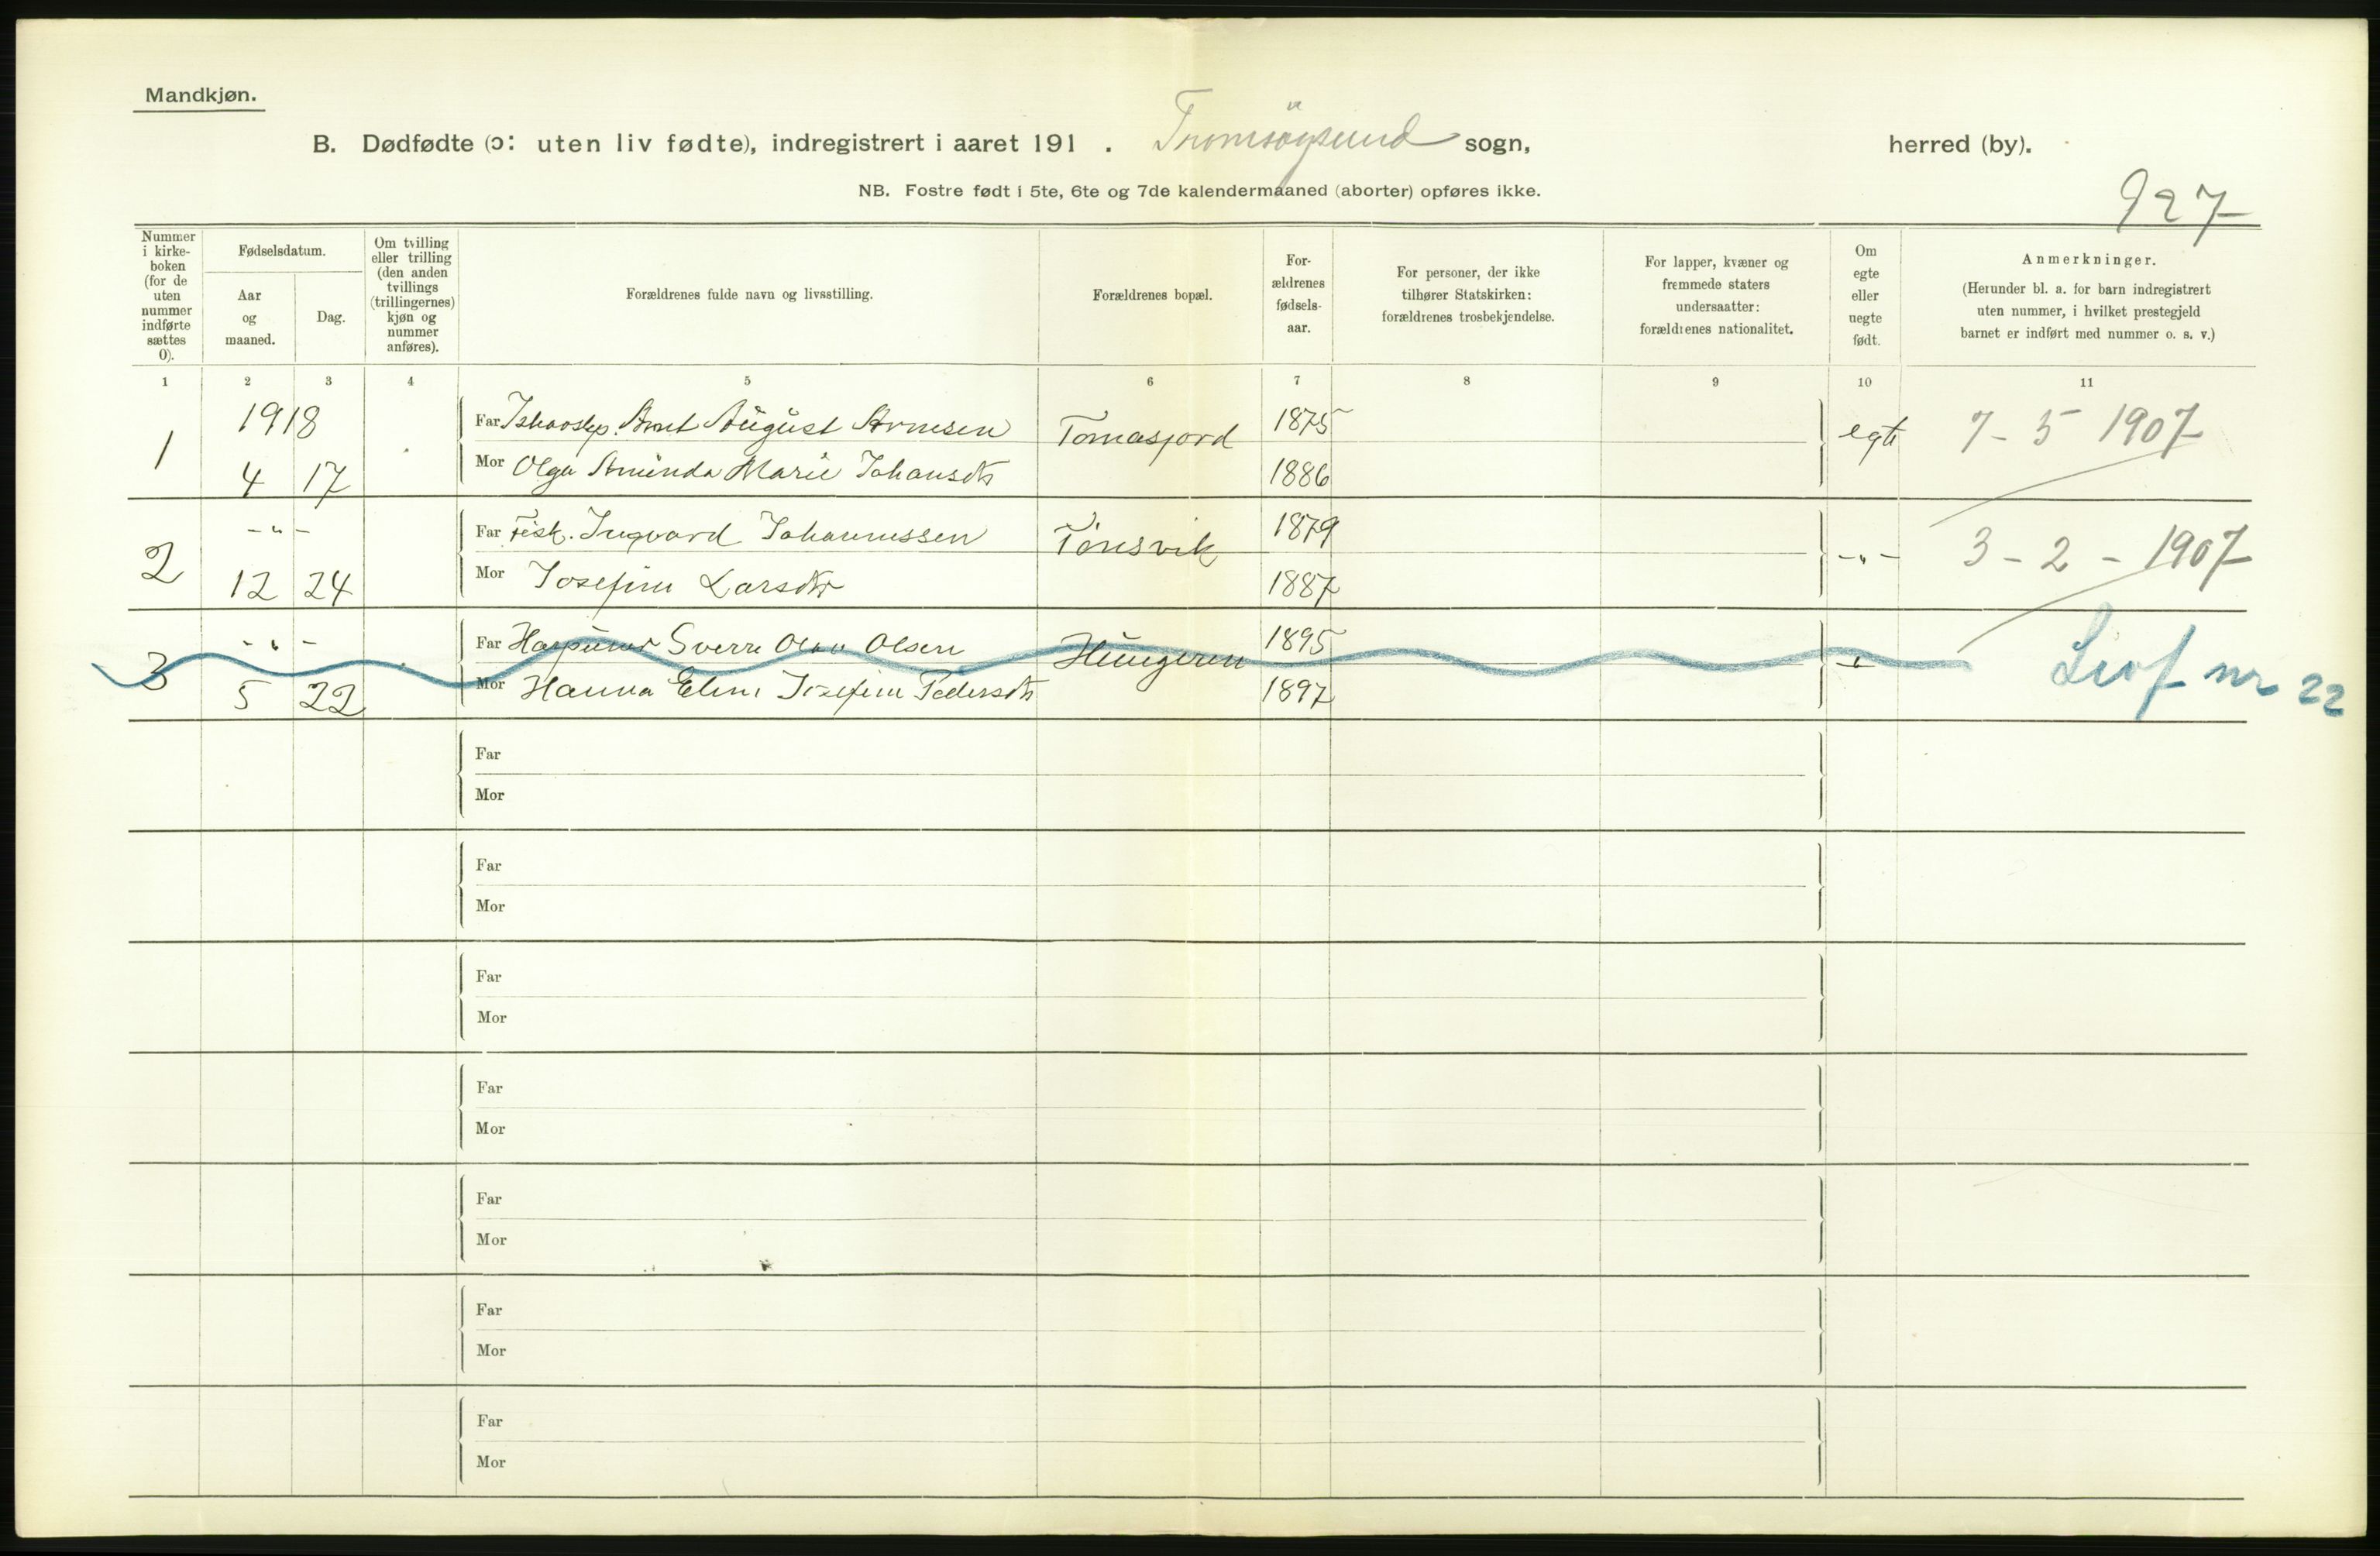 Mandkjøn.
B. Dødfødte (ɔ: uten liv fødte), indregistrert i aaret 191 . Tromsøysund sogn, herred (by).
NB. Fostre født i 5te, 6te og 7de kalendermaaned (aborter) opføres ikke.
927
Nummer i kirke-boken (for de uten nummer indførte sættes 0).
Fødselsdatum.
Aar og maaned.
Dag.
Om tvilling eller trilling (den anden tvillings (trillingernes) kjøn og nummer anføres).
Forældrenes fulde navn og livsstilling.
Forældrenes bopæl.
For-ældrenes fødsels-aar.
For personer, der ikke tilhører Statskirken: forældrenes trosbekjendelse.
For lapper, kvæner og fremmede staters undersaatter: forældrenes nationalitet.
Om egte eller uegte født.
Anmerkninger.
(Herunder bl. a. for barn indregistrert uten nummer, i hvilket prestegjeld barnet er indført med nummer o. s. v.)
1 2 3 4 5 6 7 8 9 10 11
1918
Far Ishavsskp. Arnt August Arnesen Tomasjord 1875 egte 7-5 1907
1 4 17 Mor Olga Aminda Marie Johansdtr 1886
-"-
Far Fisk. Ingvard Johannessen Tønsvik 1879 -"- 3-2-1907
2 12 24 Mor Josefine Larsdtr 1887
-"-
Far Harpuner Sverre Olav Olsen Hungeren 1895 -"- Levf nr 22
3 5 22 Mor Hanna Eline Josefine Pedersdtr 1897
Far
Mor
Far
Mor
Far
Mor
Far
Mor
Far
Mor
Far
Mor
Far
Mor